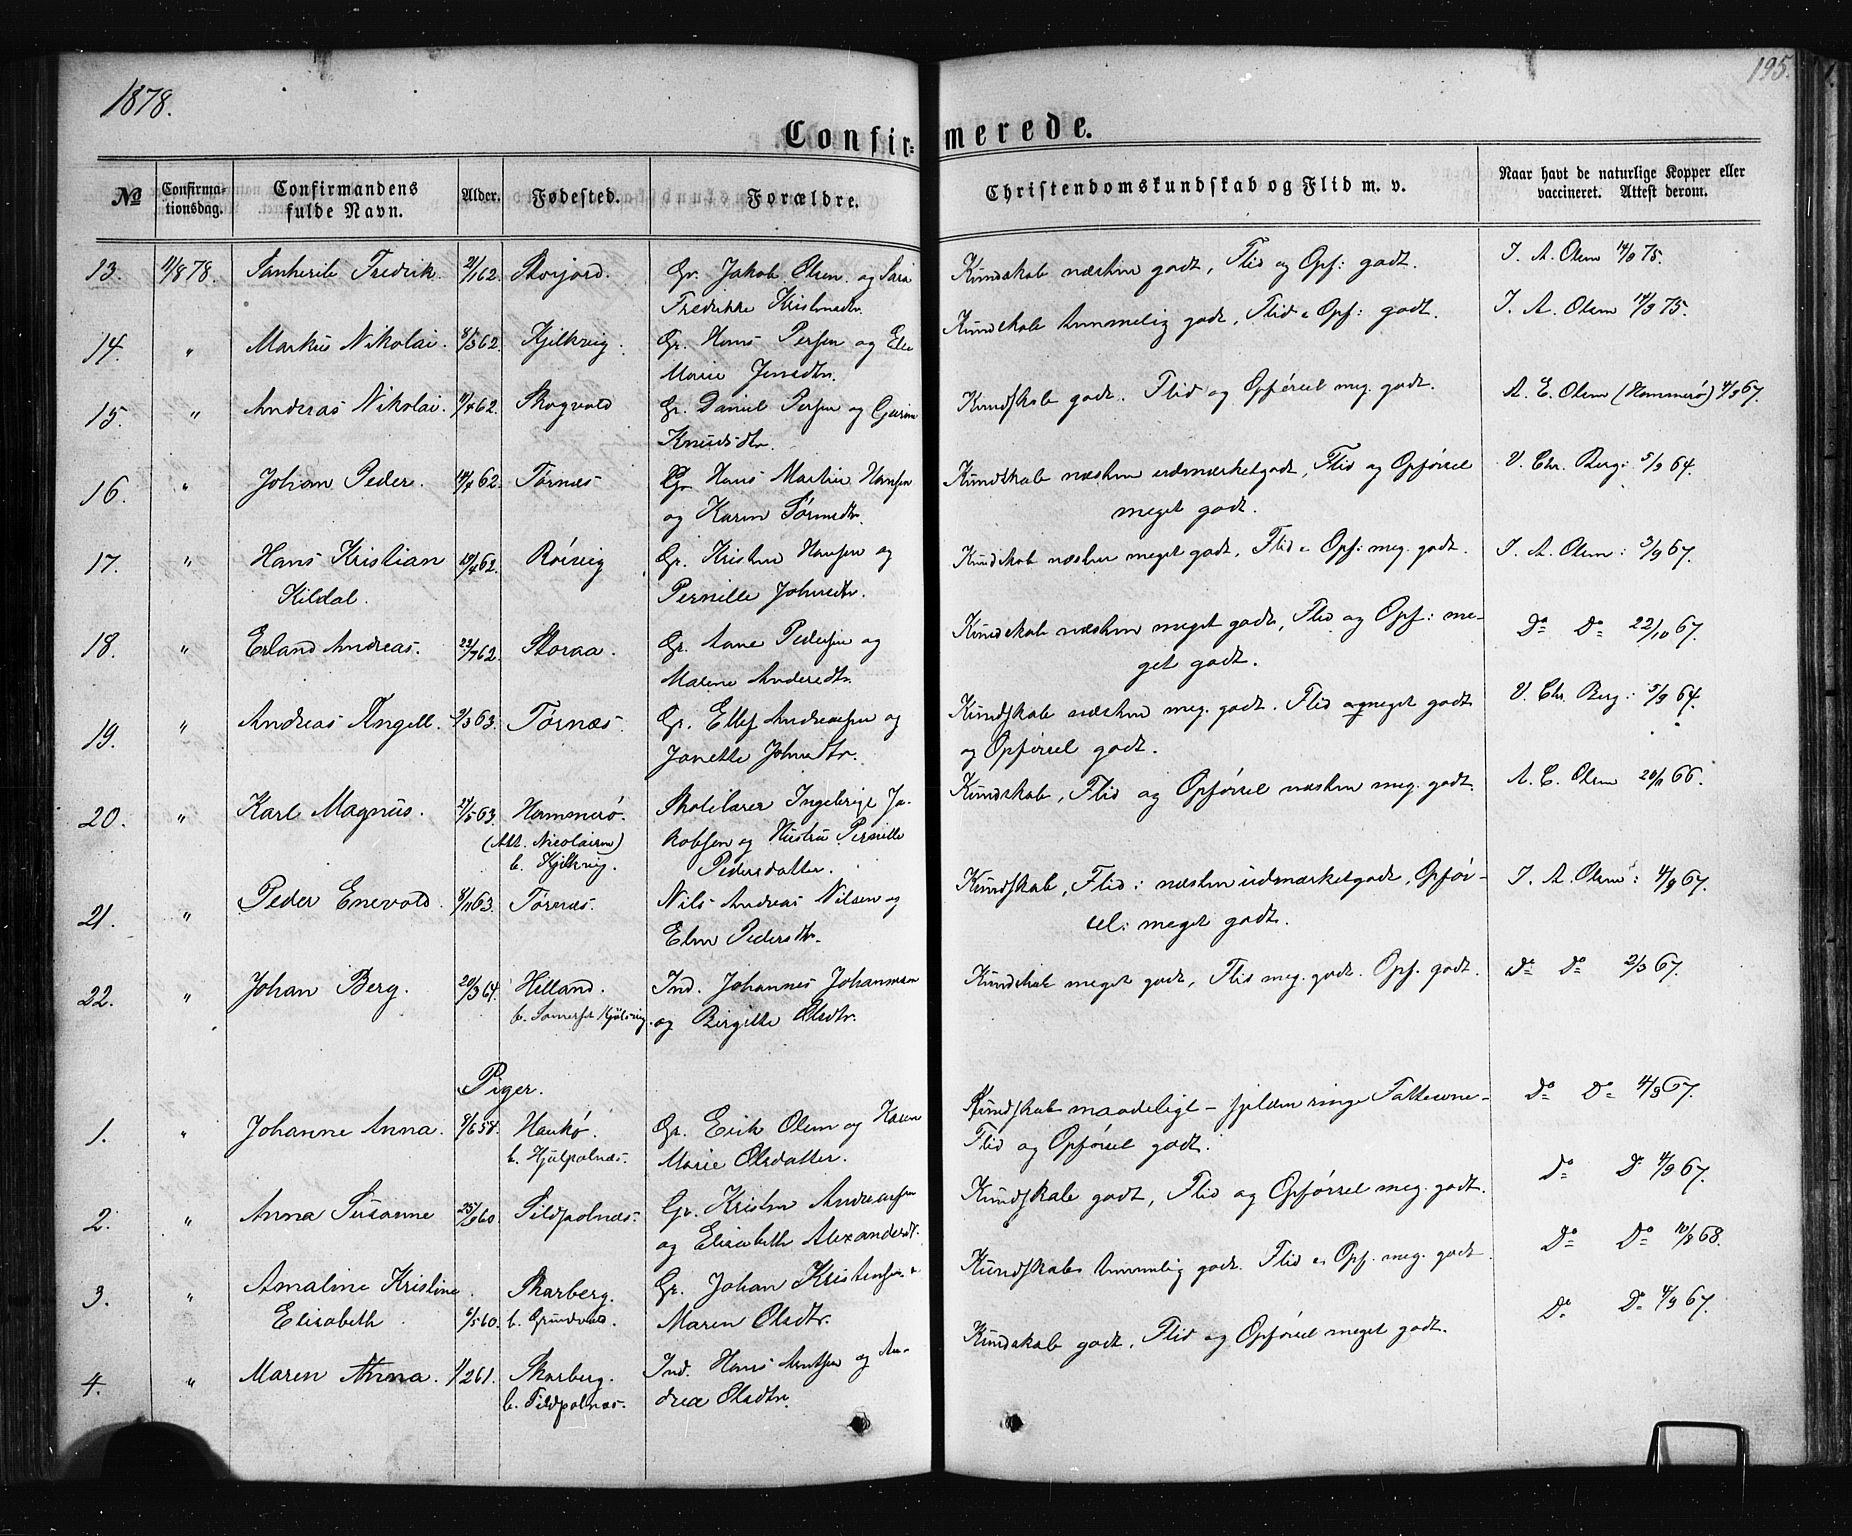 1878.
195.
Confirmerede.
No
Confirmationsdag.
Confirmandens fulde Navn.
Alder.
Fødested.
Forældre.
Christendomskundskab og Flid m. v.
Naar havt de naturlige Kopper eller vaccineret. Attest derom.
13. 11/8 78. Fredrik 2/1 62. Storjord. Gr. Jakob Olsen og Sara Kundskab næsten godt, Flid og Opf: godt. J. A. Olsen 14/9 75.
Fredrikke
14. " Markus Nikolai. 8/3 62. Kjelkvig. Gr. Hans Persen og Ele Kundskab temmelig godt, Flid o Opf: godt. J. A. Olsen 14/9 75.
Marie Jensdtr.
15. " Anderas Nikolai. 62. Skogvold Gr. Daniel Persen og Kundskab godt. Flid og Opførsel meg. godt. A. E. Olsen (Hammerø) 4/9 67.
Knudsdtr
16. " Johan Peder. 62. Tørnæs Gr. Hans Martin Hansen Kundskab næsten udmærketgodt, Flid og Opførsel V. Chr. Berg: 5/9 64.
og Karen meget godt.
17. " Hans Kristian 62. Røivig Gr. Kristen Hansen og Kundskab næsten meget godt, Flid o Opf: meg. godt. J. A. Olsen: 3/9 67.
Kildal. Pernille Johnsdtr.
18. " Erland Andreas. 22/7 62. Storaa. Gr. Aane Pedersen og Kundskab næsten meget godt, Flid og Opf: me- Do Do 22/10 67.
Malene get godt.
19. " Andreas Angell. 2/3 63. Tørnæs. Gr. Ellef Andreassen og Kundskab næsten meg. godt. Flid meget godt V. Chr. Berg: 5/9 64.
Janette Johnsdtr. og Opførsel godt.
20. " Karl Magnus. 2/5 63. Hammerø. Skolelærer Ingebrigt Ja- Kundskab, Flid og Opførsel næsten meg. godt A. E. Olsen 66.
(Att. Nicolaisen) kobsen og Hustru Pernille
b. Kjelkvig. Pedersdatter.
21. " Peder Enevold. 8/11 63. Tørnæs. Nils Andreas Nilsen og Kundskab, Flid: næsten udmærketgodt, Opfør- J. A. Olsen: 4/9 67.
Elen Pedersdtr. sel: meget godt.
22. " Johan Berg. 20/3 64. Helland. Ind. Johannes Johannesen Kundskab meget godt, Flid meg. godt. Opf. godt. Do Do 2/3 67.
b. og Birgitte Olsdtr.
Piger.
1. " Johanne Anna. 58. b. Hjulpolnæs. Gr. Erik Olsen og Karen Kundskab maadeligt - ringe Fatteevne- Do Do 4/9 67.
Marie Olsdatter. Flid og Opførsel godt.
2. " Anna Susanne 25/6 60. Sildpolnæs. Gr. Kristen Andreassen Kundskab godt, Flid og Opførsel meg. godt. Do Do 4/9 67.
og Elisabeth Alexandersdt.
3. " Amaline Kristine Skarberg. Gr. Johan Kristensen o Kundskab temmelig godt. Flid o Opf. meg. godt. Do Do 10/8 68.
Elisabeth 6/5 60. b. Grundvad. Maren Olsdtr.
4. " Maren Anna. 1/2 61. Skarberg. Ind. Hans Arntsen og An- Kundskab godt, Flid og Opførsel meget godt. Do Do 4/9 67.
b. Sildpolnæs. drea Olsdtr.